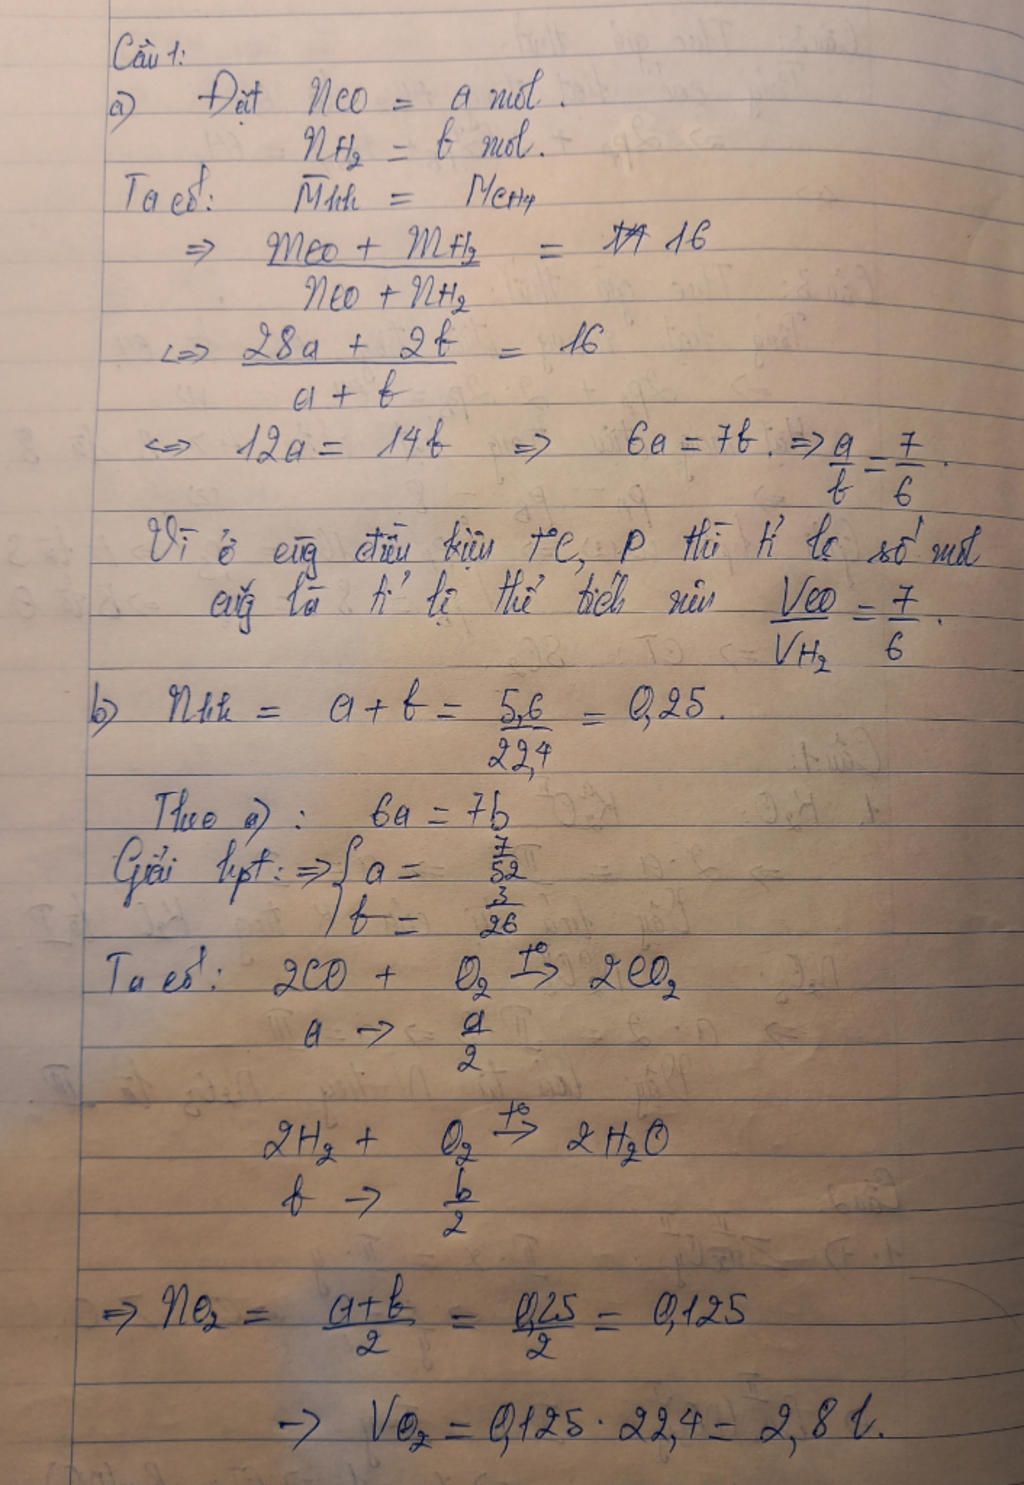 Câu 1:
a) Đặt nCO = a mol.
nH₂ = b mol.
Ta có: M̅hh = MCH₄
=> mCO + mH₂ / nCO + nH₂ = 16
<=> 28a + 2b / a + b = 16
<=> 12a = 14b => 6a = 7b. => a/b = 7/6.
Vì ở cùg điều kiện t°C, p thì tỉ lệ số mol
cũg là tỉ lệ thể tích nên VCO/VH₂ = 7/6.
b) nhh = a + b = 5,6/22,4 = 0,25.
Theo a): 6a = 7b
Giải hpt: => { a = 7/52
b = 3/26
Ta có: 2CO + O₂ t°→ 2CO₂
a → a/2
2H₂ + O₂ t°→ 2H₂O
b → b/2
=> nO₂ = a+b/2 = 0,25/2 = 0,125
→ VO₂ = 0,125 . 22,4 = 2,8 l.